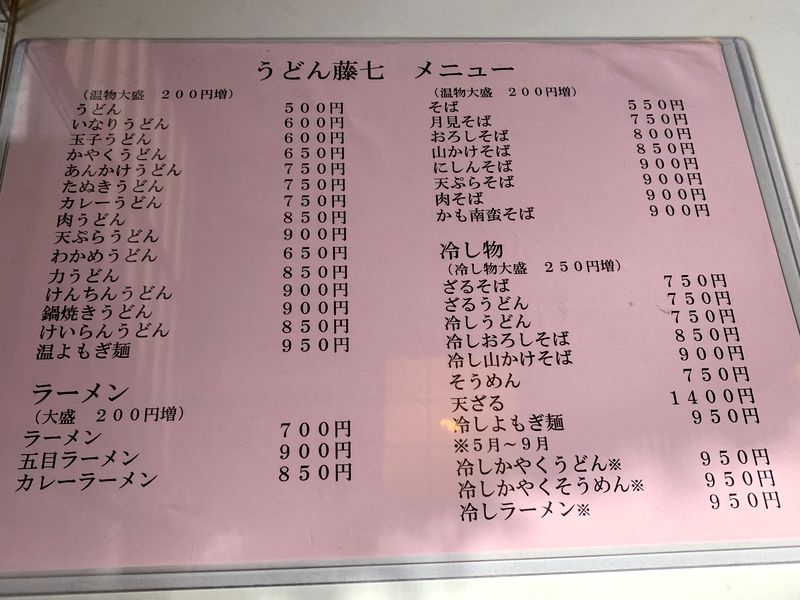 うどん藤七　メニュー
（温物大盛　２００円増）
うどん　５００円
いなりうどん　６００円
玉子うどん　６００円
かやくうどん　６５０円
あんかけうどん　７５０円
たぬきうどん　７５０円
カレーうどん　７５０円
肉うどん　８５０円
天ぷらうどん　９００円
わかめうどん　６５０円
力うどん　８５０円
けんちんうどん　９００円
鍋焼きうどん　９００円
けいらんうどん　８５０円
温よもぎ麺　９５０円
ラーメン
（大盛　２００円増）
ラーメン　７００円
五目ラーメン　９００円
カレーラーメン　８５０円
（温物大盛　２００円増）
そば　５５０円
月見そば　７５０円
おろしそば　８００円
山かけそば　８５０円
にしんそば　９００円
天ぷらそば　９００円
肉そば　９００円
かも南蛮そば　９００円
冷し物
（冷し物大盛　２５０円増）
ざるそば　７５０円
ざるうどん　７５０円
冷しうどん　７５０円
冷しおろしそば　８５０円
冷し山かけそば　９００円
そうめん　７５０円
天ざる　１４００円
冷しよもぎ麺　９５０円
※５月～９月
冷しかやくうどん※　９５０円
冷しかやくそうめん※　９５０円
冷しラーメン※　９５０円